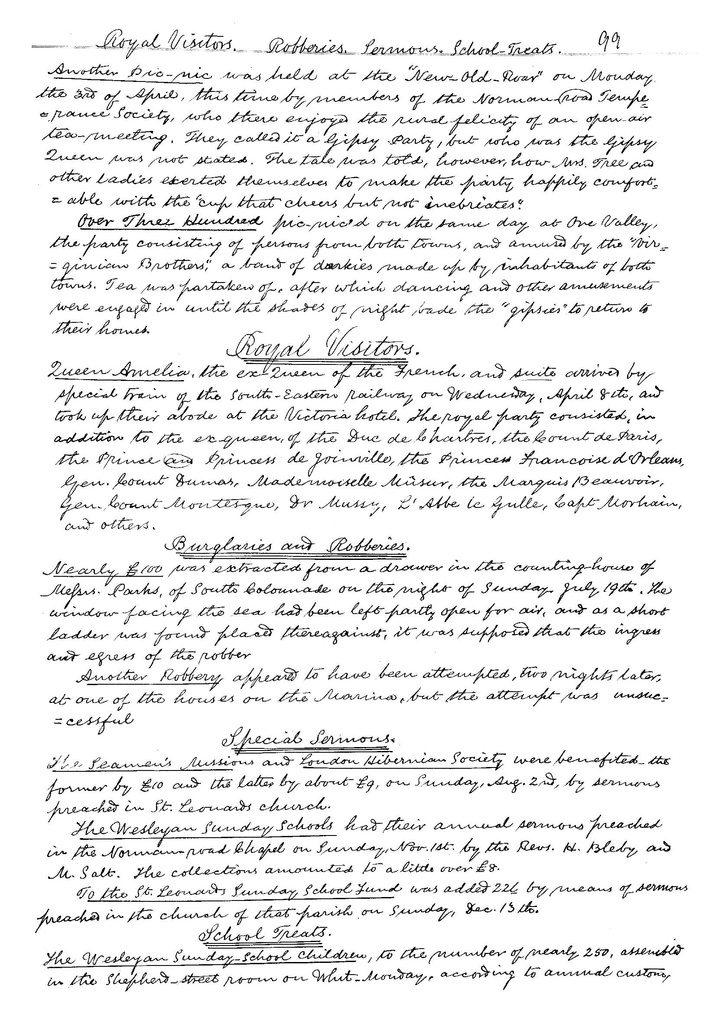 Royal Visitors. Robberies. Sermons. School-Treats. 99
Another Pic-nic was held at the "New-Old-Roar" on Monday
the 3rd of April, this time by members of the Norman-road Tempe-
=rance Society, who there enjoyed the rural felicity of an open-air
tea-meeting. They called it a Gipsy Party, but who was the Gipsy
Queen was not stated. The tale was told, however, how Mrs. Tree and
other Ladies exerted themselves to make the party happily comfort=
=able with the "cup that cheers but not inebriates".
Over Three Hundred pic-nic'd on the same day at Ore Valley,
the party consisting of persons from both towns, and amused by the "Vir=
=ginian Brothers", a band of darkies made up by inhabitants of both
towns. Tea was partaken of, after which dancing and other amusements
were engaged in until the shades of night bade the "gipsies" to return to
their homes.
Royal Visitors.
Queen Amelia, the ex-Queen of the French, and suite arrived by
special train of the South-Eastern railway on Wednesday, April 8th, and
took up their abode at the Victoria hotel. The royal party consisted, in
addition to the ex-queen, of the Duc de Chartres, the Count de Paris,
the Prince and Princess de Joinville, the Princess Francoise d'Orleans,
Gen. Count Dumas, Mademoiselle Müsur, the Marquis Beauvoir,
Gen. Count Montesque, Dr Mussy, L'Abbe le Gulle, Capt Morhain,
and others.
Burglaries and Robberies.
Nearly £100 was extracted from a drawer in the counting-house of
Messrs. Parks, of South Colonnade on the night of Sunday July 19th. The
window facing the sea had been left partly open for air, and as a short
ladder was found placed thereagainst, it was supposed that the ingress
and egress of the robber
Another Robbery appeared to have been attempted, two nights later,
at one of the houses on the Marina, but the attempt was unsuc=
=cessful
Special Sermons.
The Seamen's Missions and London Hibernian Society were benefited-the
former by £10 and the latter by about £9, on Sunday, Aug. 2nd, by sermons
preached in St. Leonards church.
The Wesleyan Sunday Schools had their annual sermons preached
in the Norman-road Chapel on Sunday, Nov. 1st. by the Revs. H. Bleby and
M. Salt. The collections amounted to a little over £8.
To the St. Leonards Sunday School Fund was added 22£ by means of sermons
preached in the church of that parish on Sunday, Dec. 13th.
School Treats.
The Wesleyan Sunday-School children, to the number of nearly 250, assembled
in the Shepherd-street room on Whit-Monday, according to annual custom,